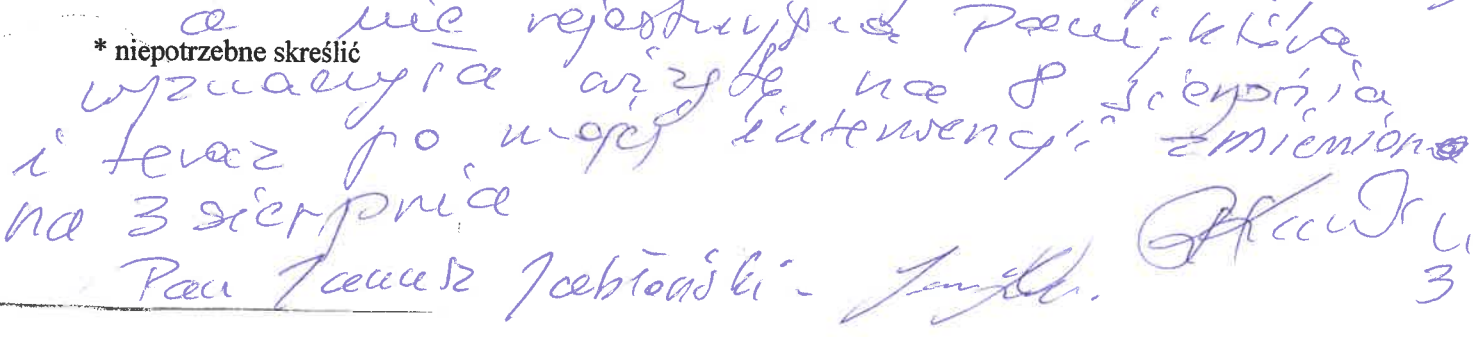 a nie rejestrująca Pani, która
* niepotrzebne skreślić
wyznaczyła wizytę na 8 sierpnia
i teraz po mojej interwencji zmieniono
na 3 sierpnia
Pan Janusz Jabłoński -
3